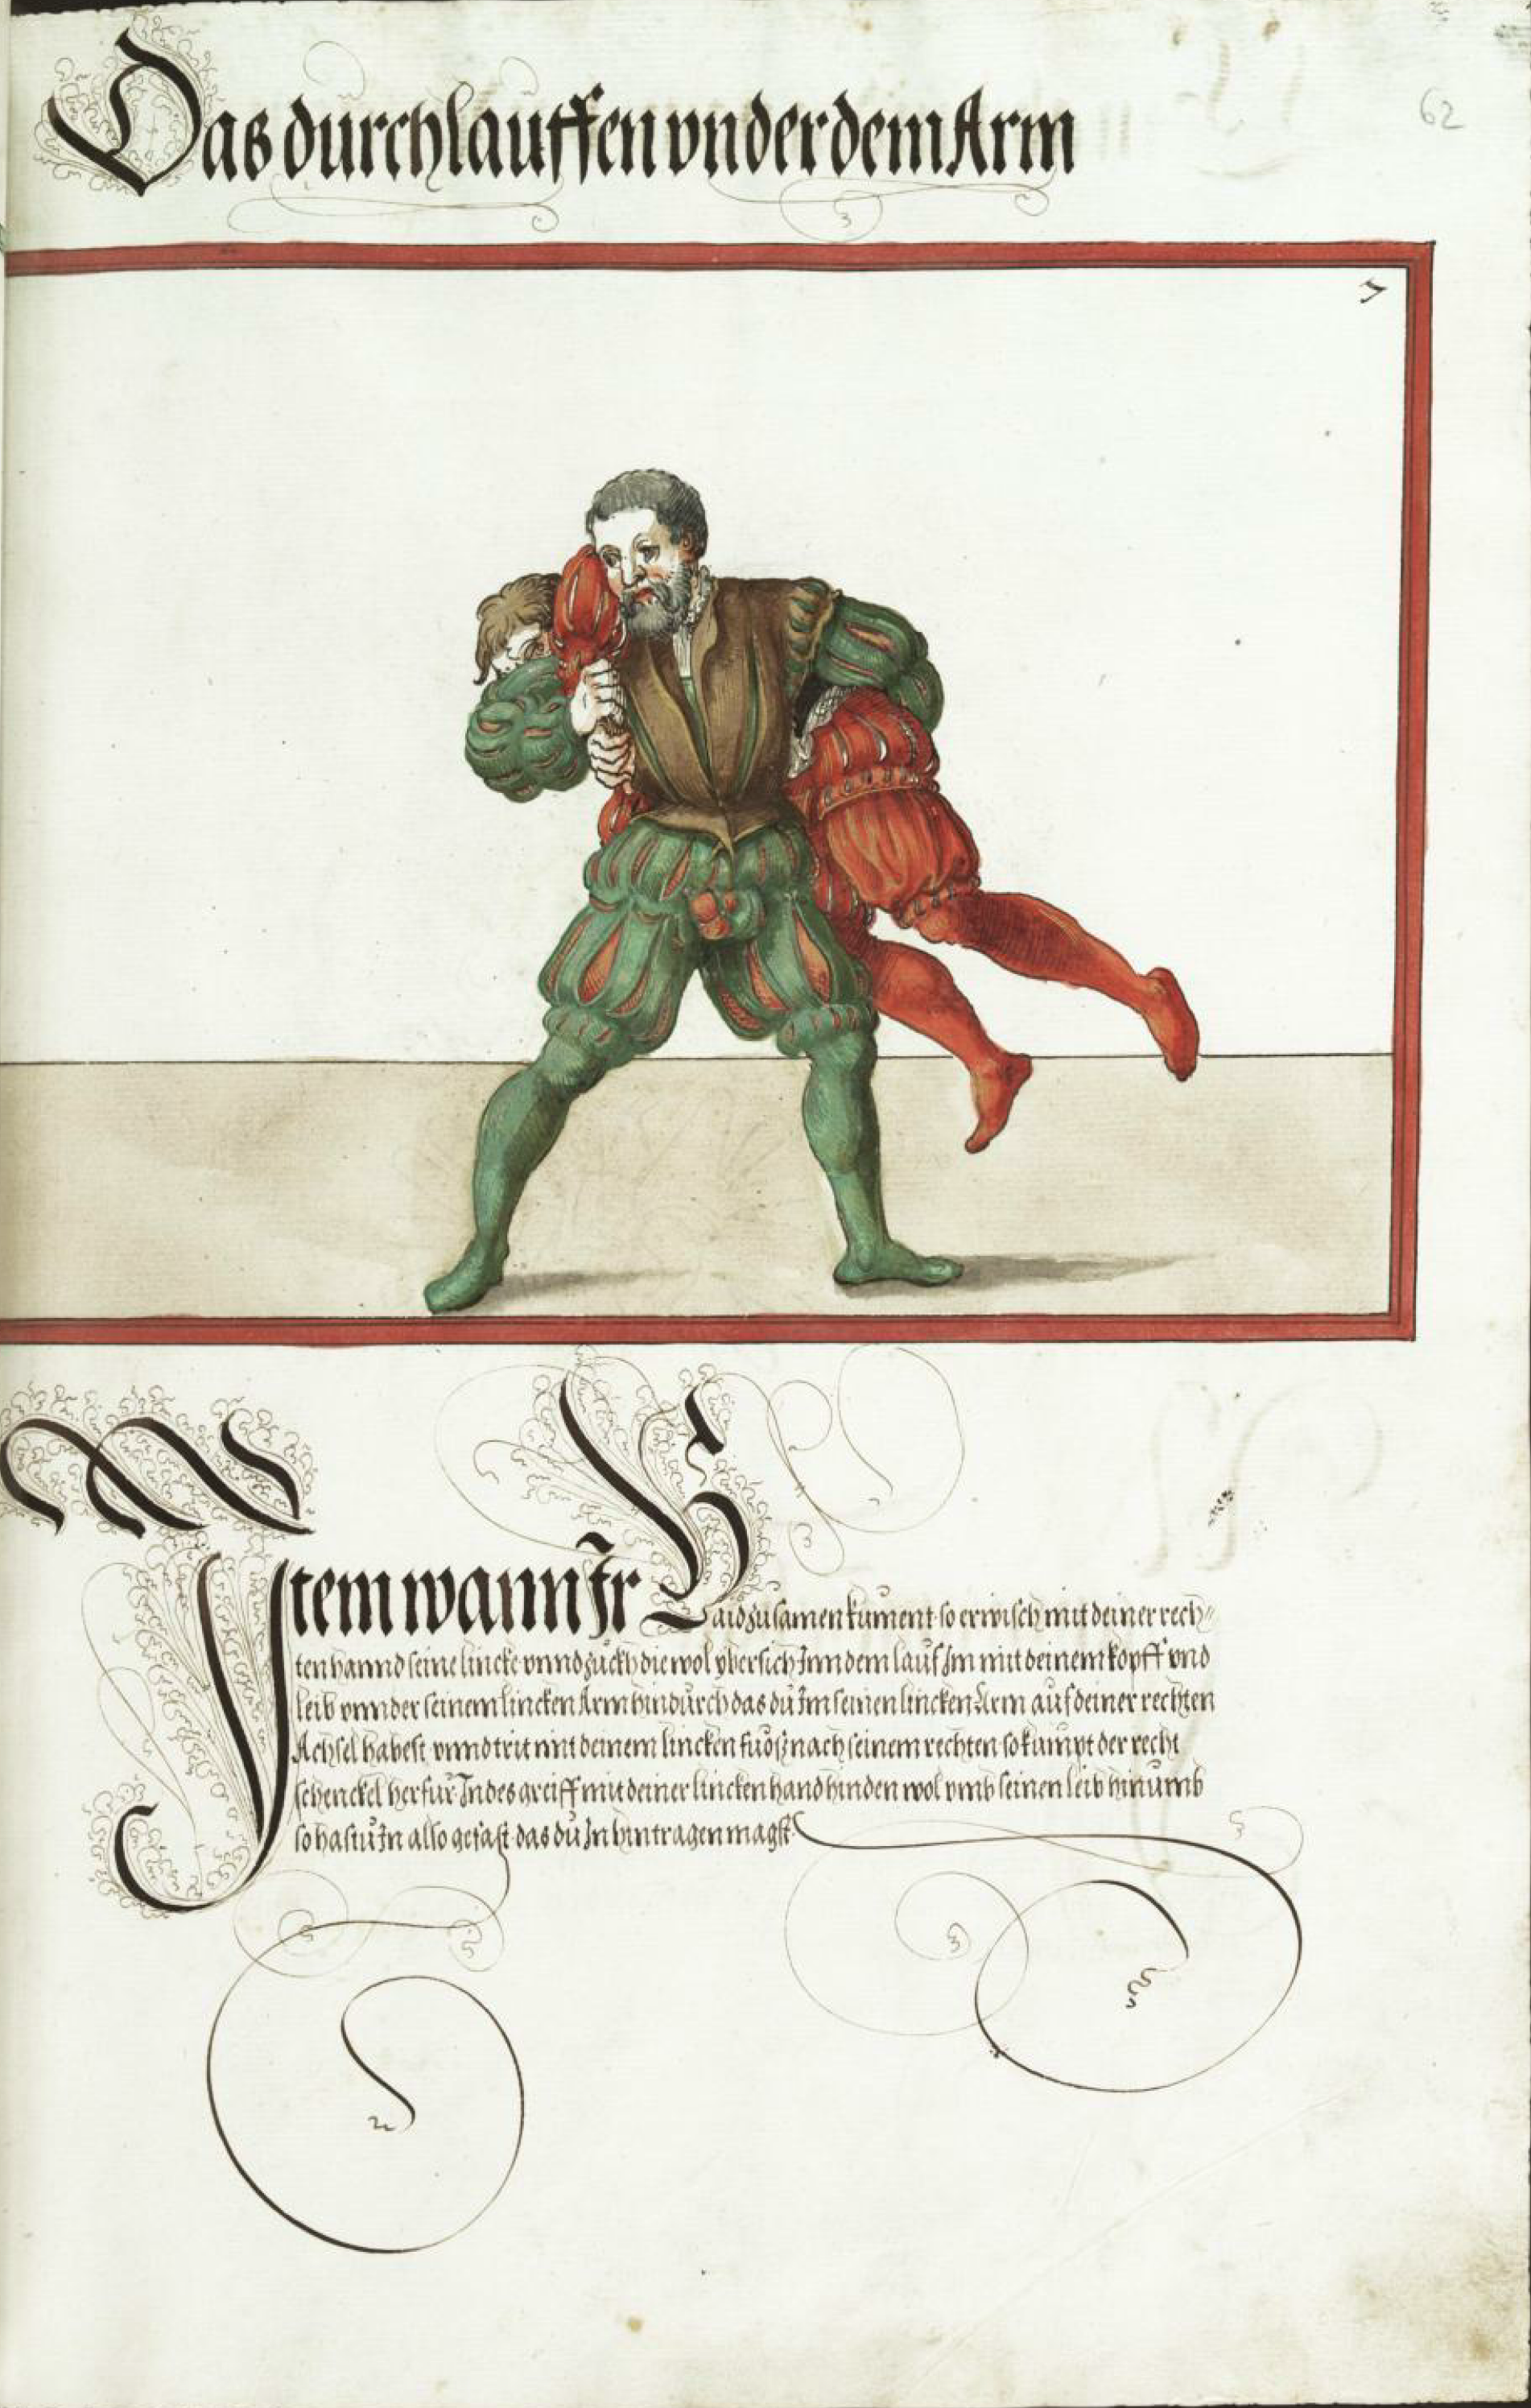 Das durchlauffen vnder dem Arm
62
7
Item wann Ir Baid zusamen kument so erwisch mit deiner rech„
ten hannd seine lincke vnnd zuckh die wol ybersich Inn dem lauf Im mit deinem kopff vnd
leib vnnder seinem lincken Arm hindurch das du Im seinen lincken Arm auf deiner rechten
Achsel habest vnnd trit mit deinem lincken fuoß nach seinem rechten so kumpt der recht
schenckel herfur Indes greiff mit deiner lincken hand hinden wol vmb seinen leib hinumb
so hastu In also gefast das du In hintragen magst